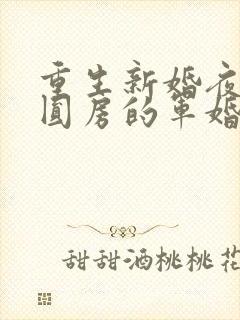 重生新婚夜
圆房的军婚
甜甜酒桃桃花